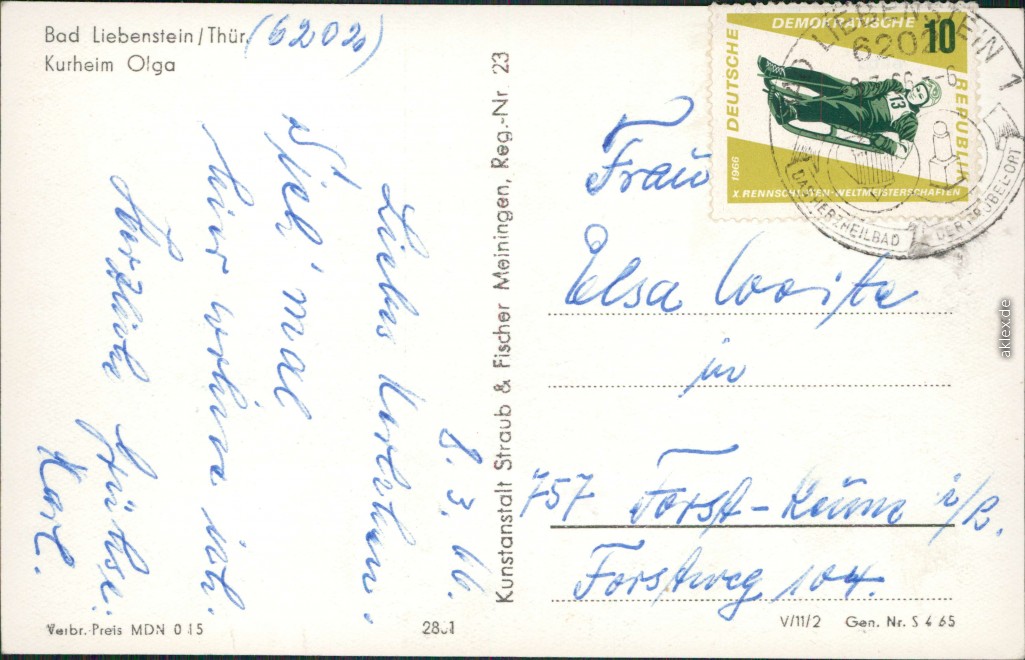 Bad Liebenstein/Thür. (6202)
Kurheim Olga
8.3.66.
Liebes
Sieh' mal
hier wohne ich.
Herzliche Grüße.
Karl.
Verbr.-Preis MDN 0 15
2801
Kunstanstalt Straub & Fischer Meiningen, Reg.-Nr. 23
DEUTSCHE
DEMOKRATISCHE
REPUBLIK
10
13
1966
X. RENNSCHLITTEN-WELTMEISTERSCHAFTEN
BAD LIEBENSTEIN 1
6202
DAS HERZHEILBAD
DER FRÖBEL-ORT
Frau
Elsa
in
757 Forst-Keune i/B.
Forstweg 104.
V/11/2 Gen. Nr. S 4 65
aklex.de